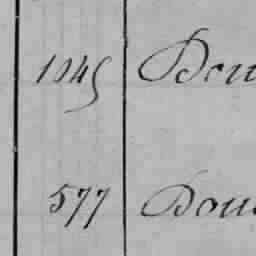 1045 Dou
577 Dou